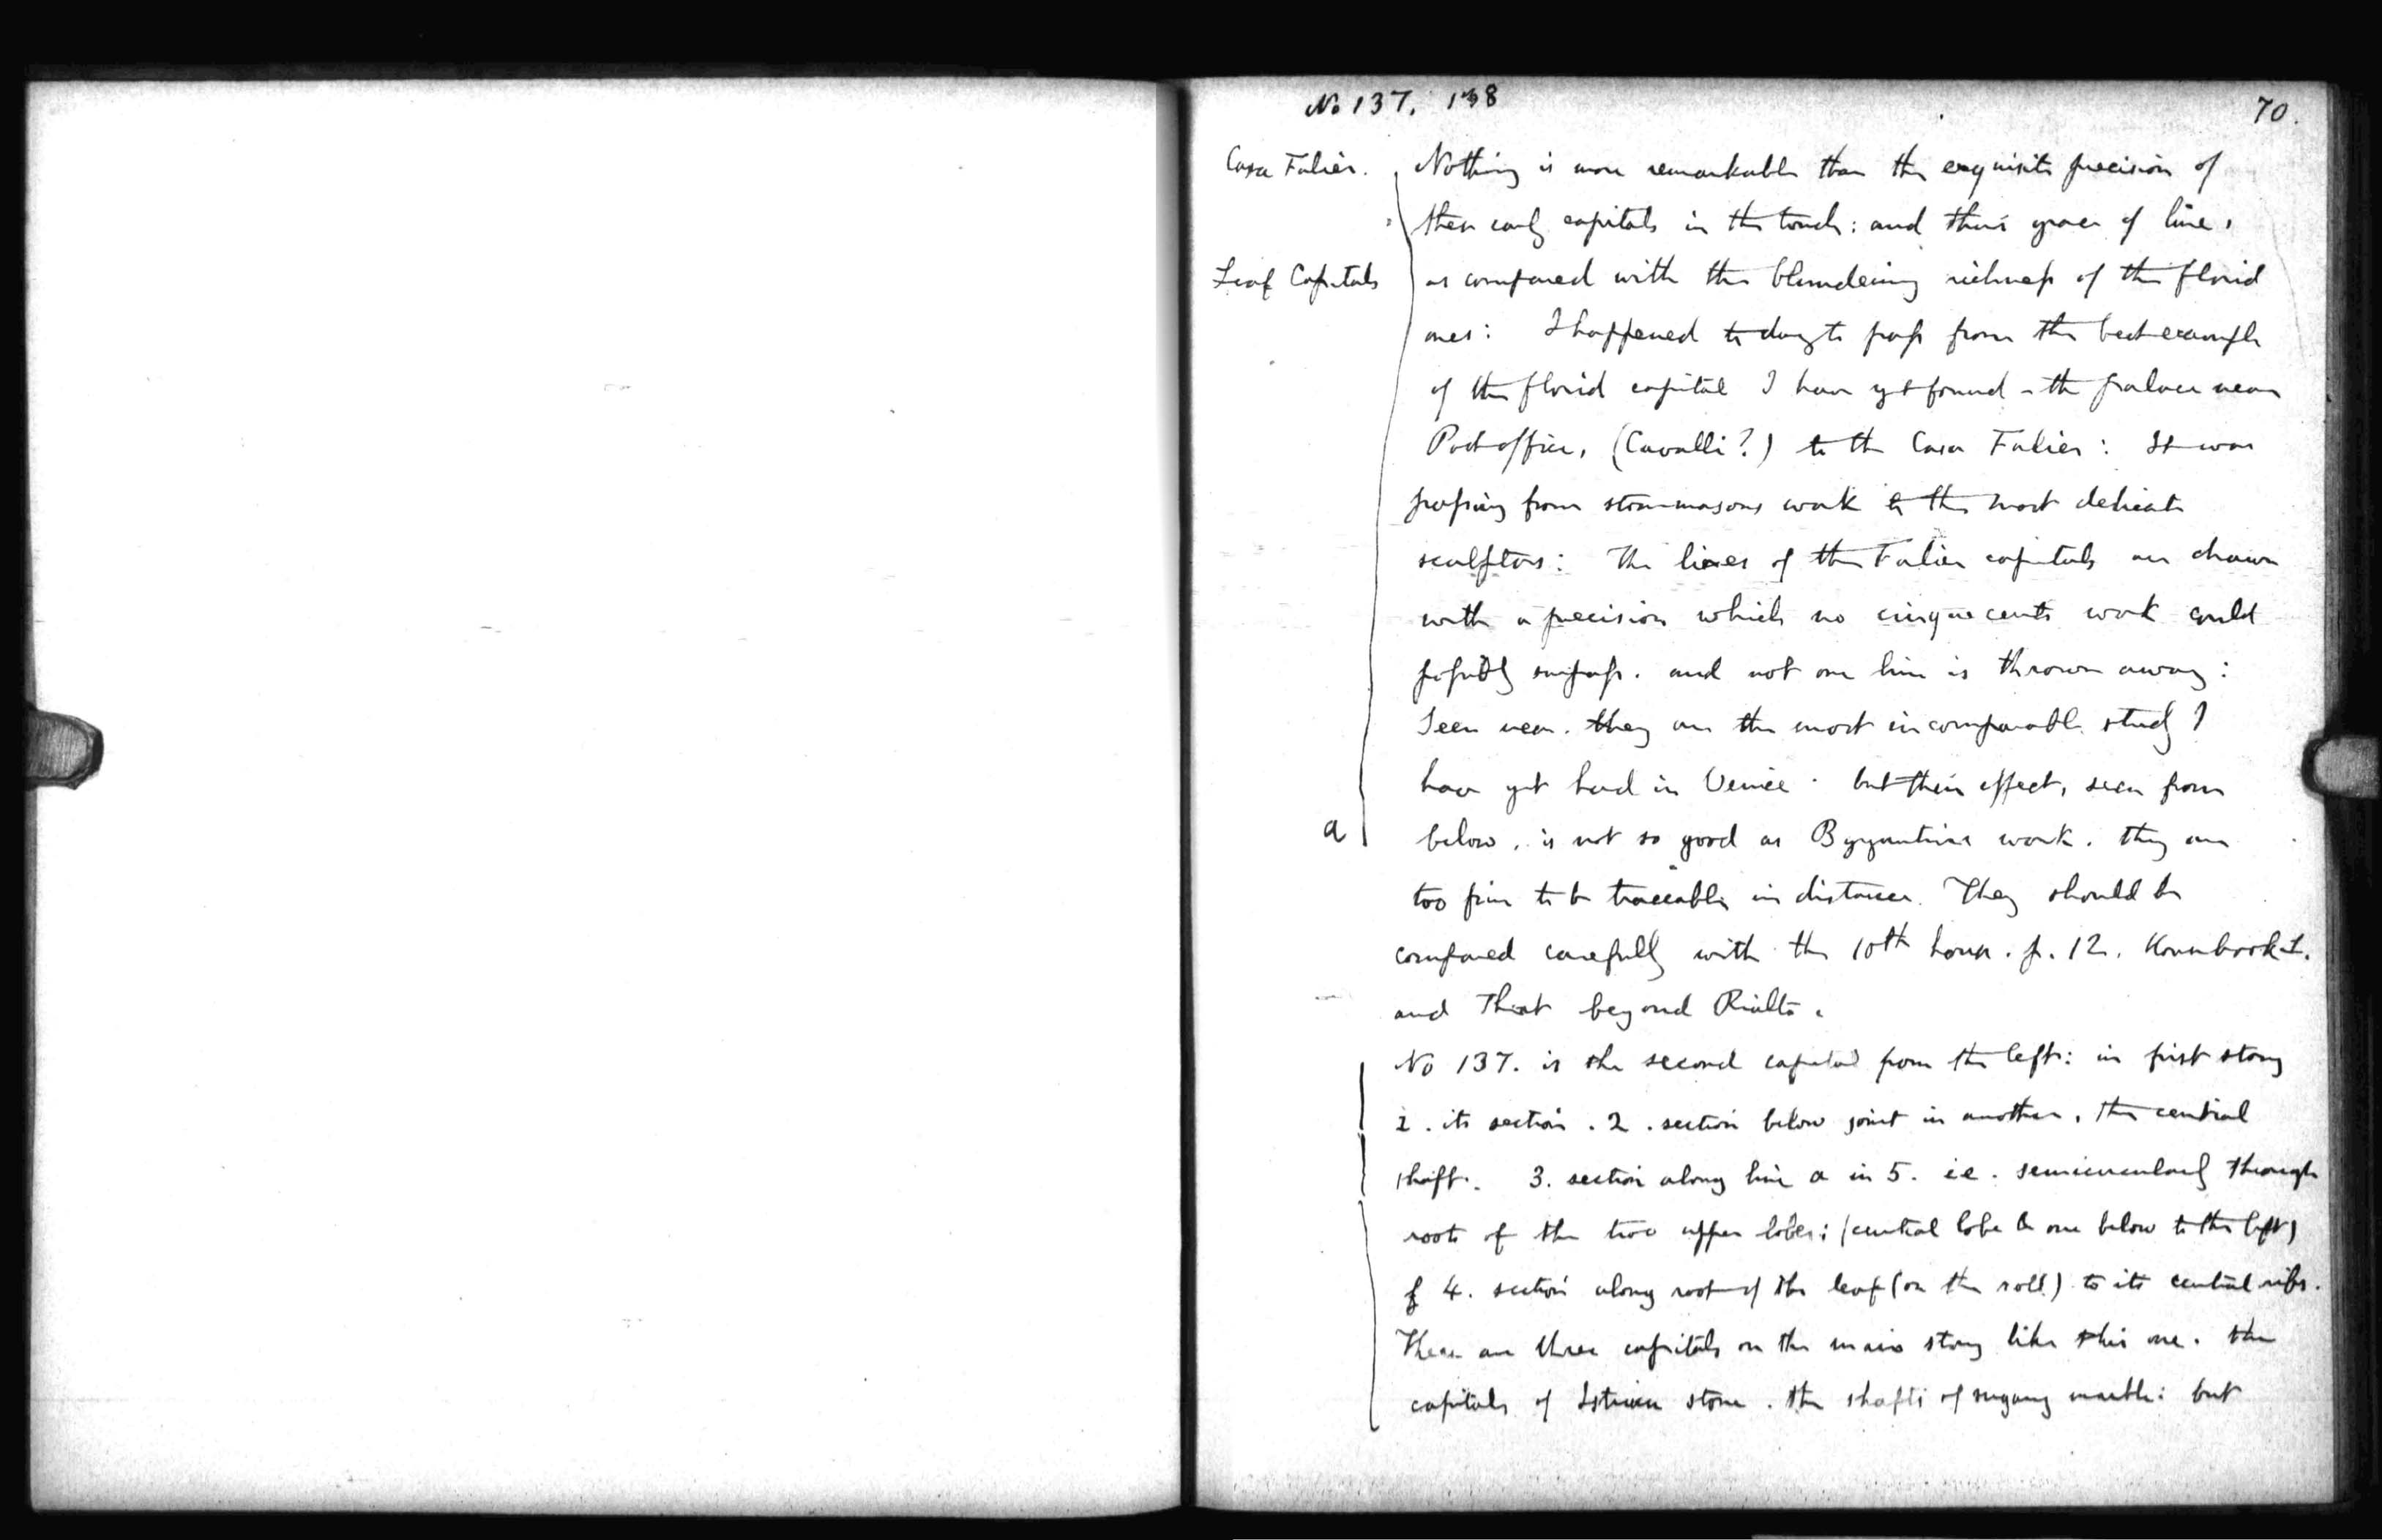 No 137. 138
70.
Casa Falier.
Nothing is more remarkable than the exquisite precision of
these early capitals in the touch: and their grace of line,
Leaf Capitals
as compared with the blundering richness of the florid
ones: I happened to day to pass from the best example
of the florid capital I have yet found - the palace near
Post office, (Cavalli?) to the Casa Falier: It was
passing from stonemasons work to the most delicate
sculptors: The lines of the Falier capitals are drawn
with a precision which no cinquecento work could
possibly surpass. and not one line is thrown away:
Seen near. they are the most incomparable study I
have yet had in Venice. but their effect, seen from
a
below, is not so good as Byzantine work. they are
too fine to be traceable in distance. They should be
compared carefully with the 10th house. p. 12. Housebook 1.
and That beyond Rialto.
No 137. is the second capital from the left: in first story
1. its section. 2. section below joint in another, the central
shaft. 3. section along line a in 5. ie. semicircularly through
roots of the two upper lobes: (central lobe & one below to the left)
& 4. section along root of the leaf (on the roll) to its central ribs.
These are three capitals on the main story like this one. the
capitals of Istrian stone. the shafts of sugary marble: but